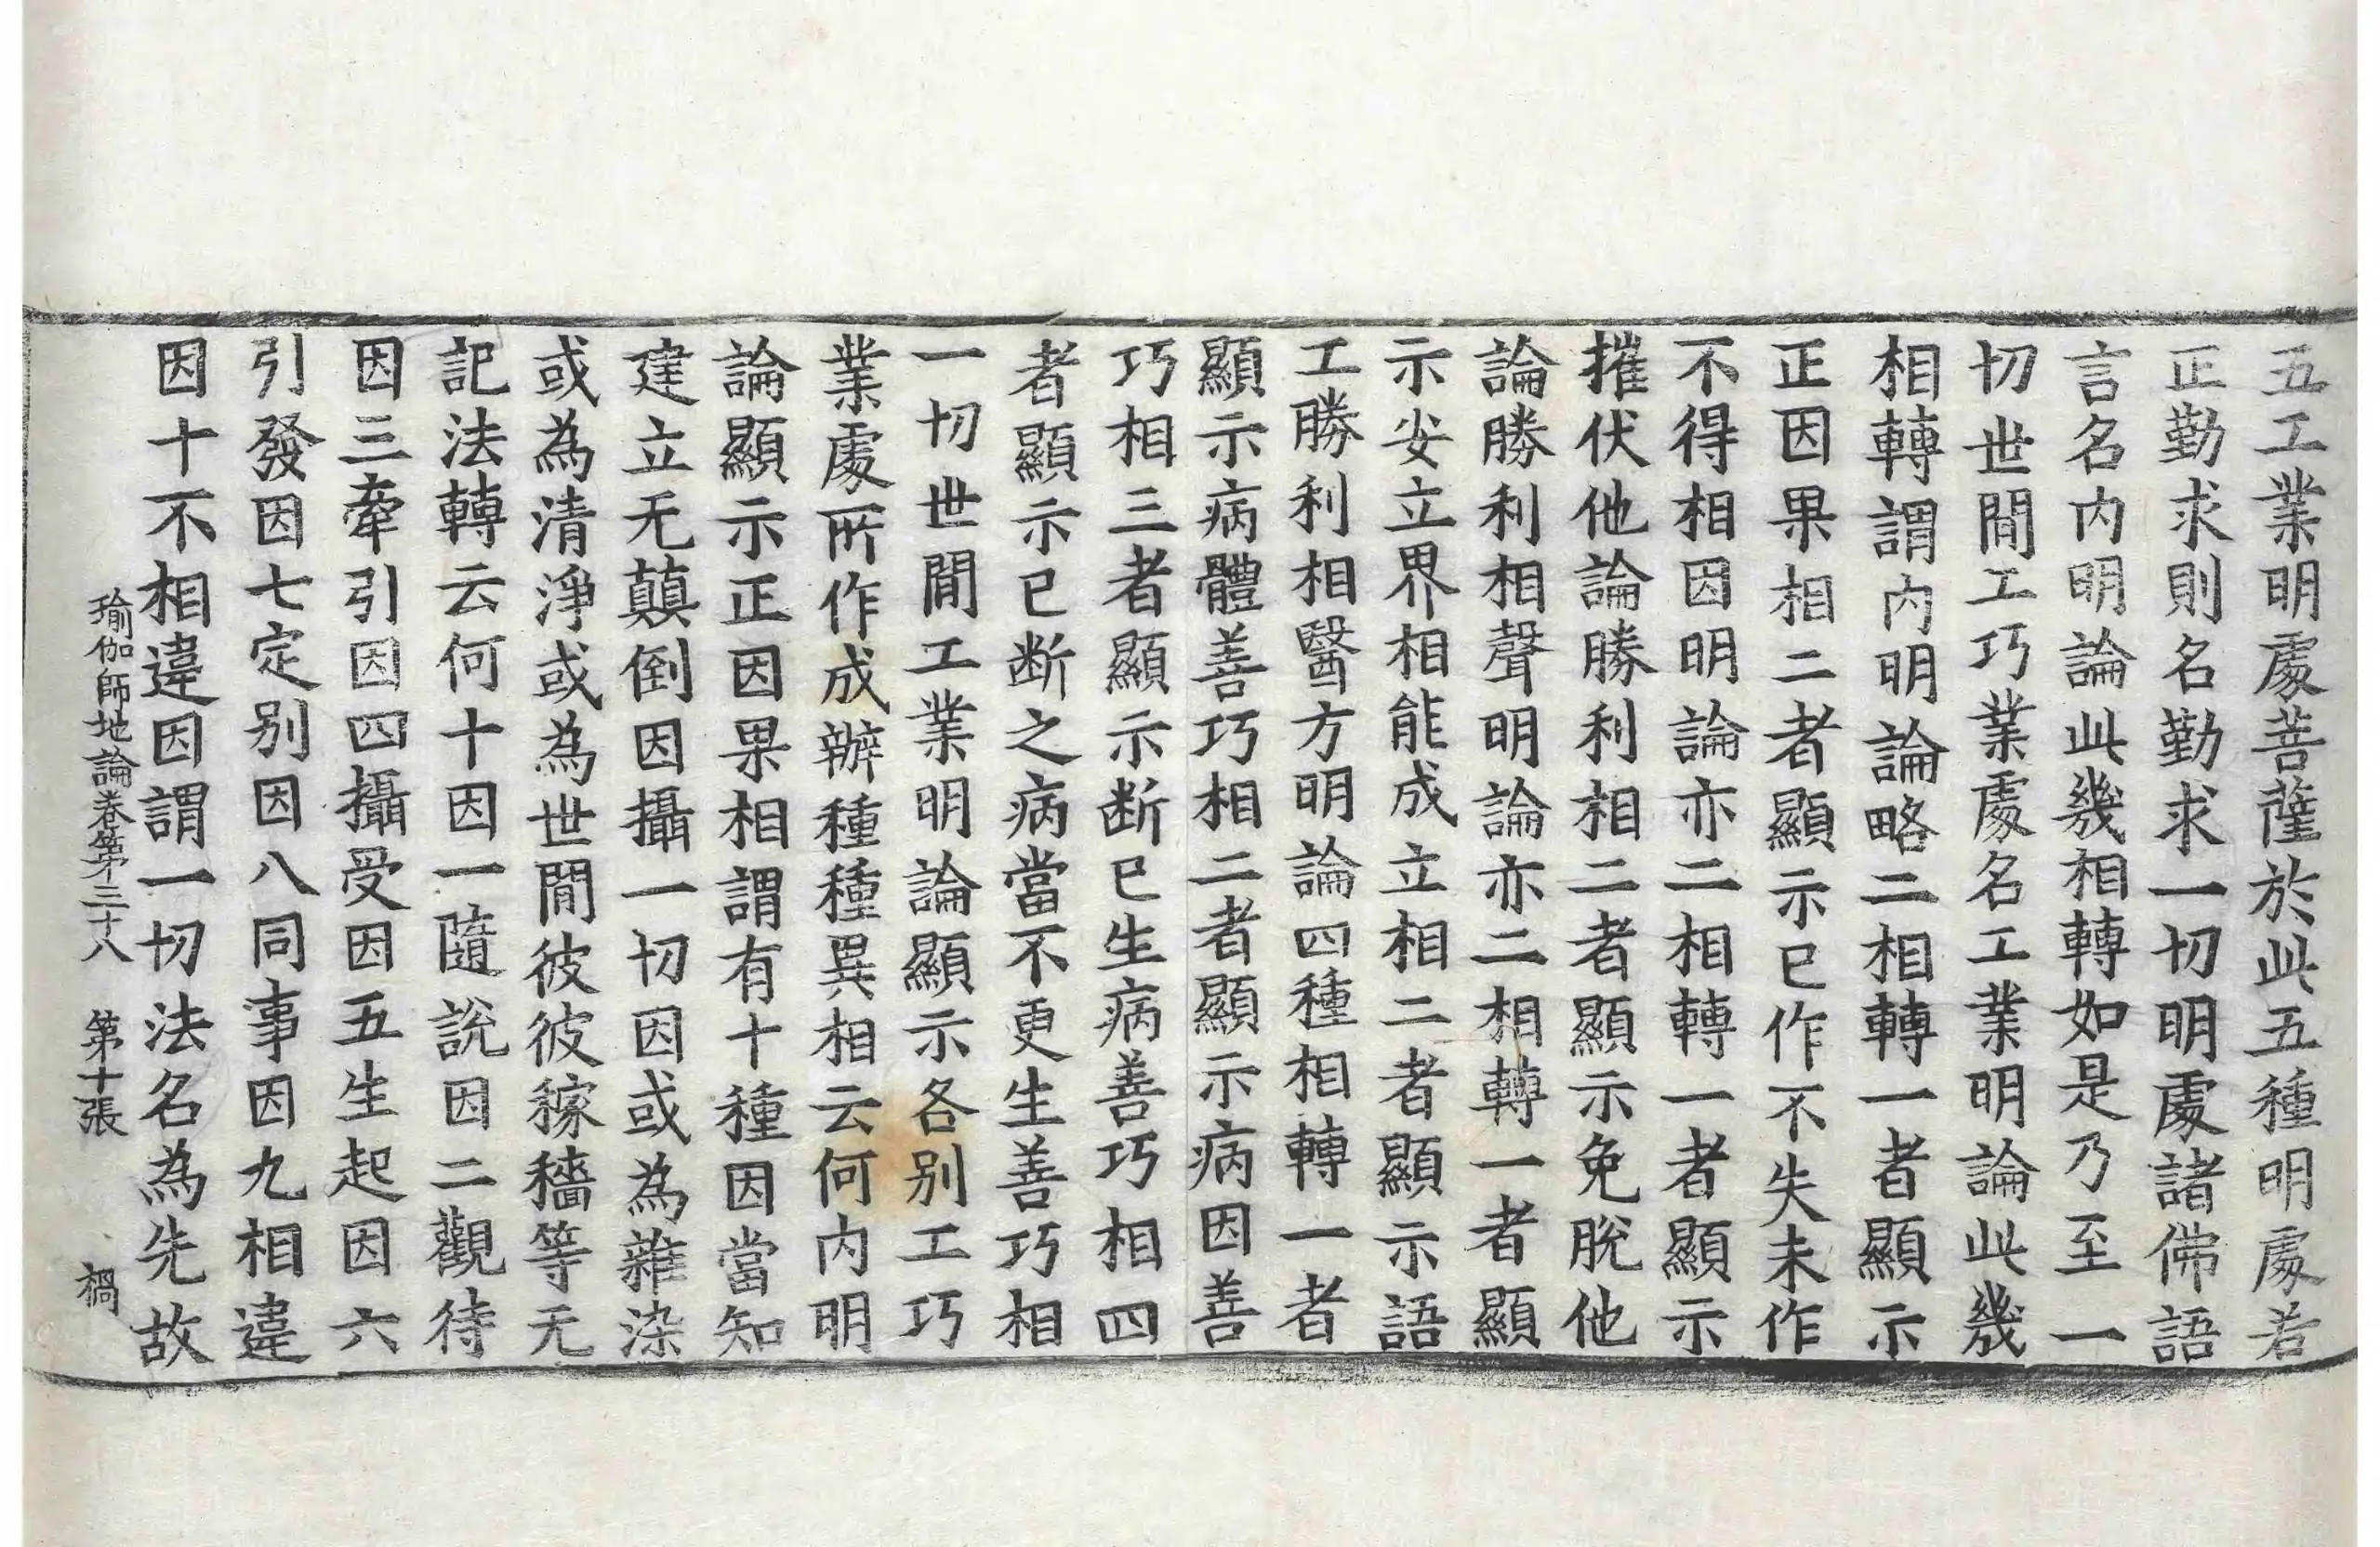 五工業明處菩薩於此五種明處若
正勤求則名勤求一切明處諸佛語
言名内明論此幾相轉如是乃至一
切世間工巧業處名工業明論此幾
相轉謂内明論略二相轉一者顯示
正因果相二者顯示已作不失未作
不得相因明論亦二相轉一者顯示
摧伏他論勝利相二者顯示免脫他
論勝利相聲明論亦二相轉一者顯
示安立界相能成立相二者顯示語
工勝利相醫方明論四種相轉一者
顯示病體善巧相二者顯示病因善
巧相三者顯示断已生病善巧相四
者顯示已断之病當不更生善巧相
一切世間工業明論顯示各别工巧
業處所作成辦種種異相云何内明
論顯示正因果相謂有十種因當知
建立无顛倒因攝一切因或為雜染
或為清淨或為世間彼彼稼穡等无
記法轉云何十因一隨說因二觀待
因三牽引因四攝受因五生起因六
引發因七定别因八同事因九相違
因十不相違因謂一切法名為先故
瑜伽師地論卷第三十八　第十張　禍